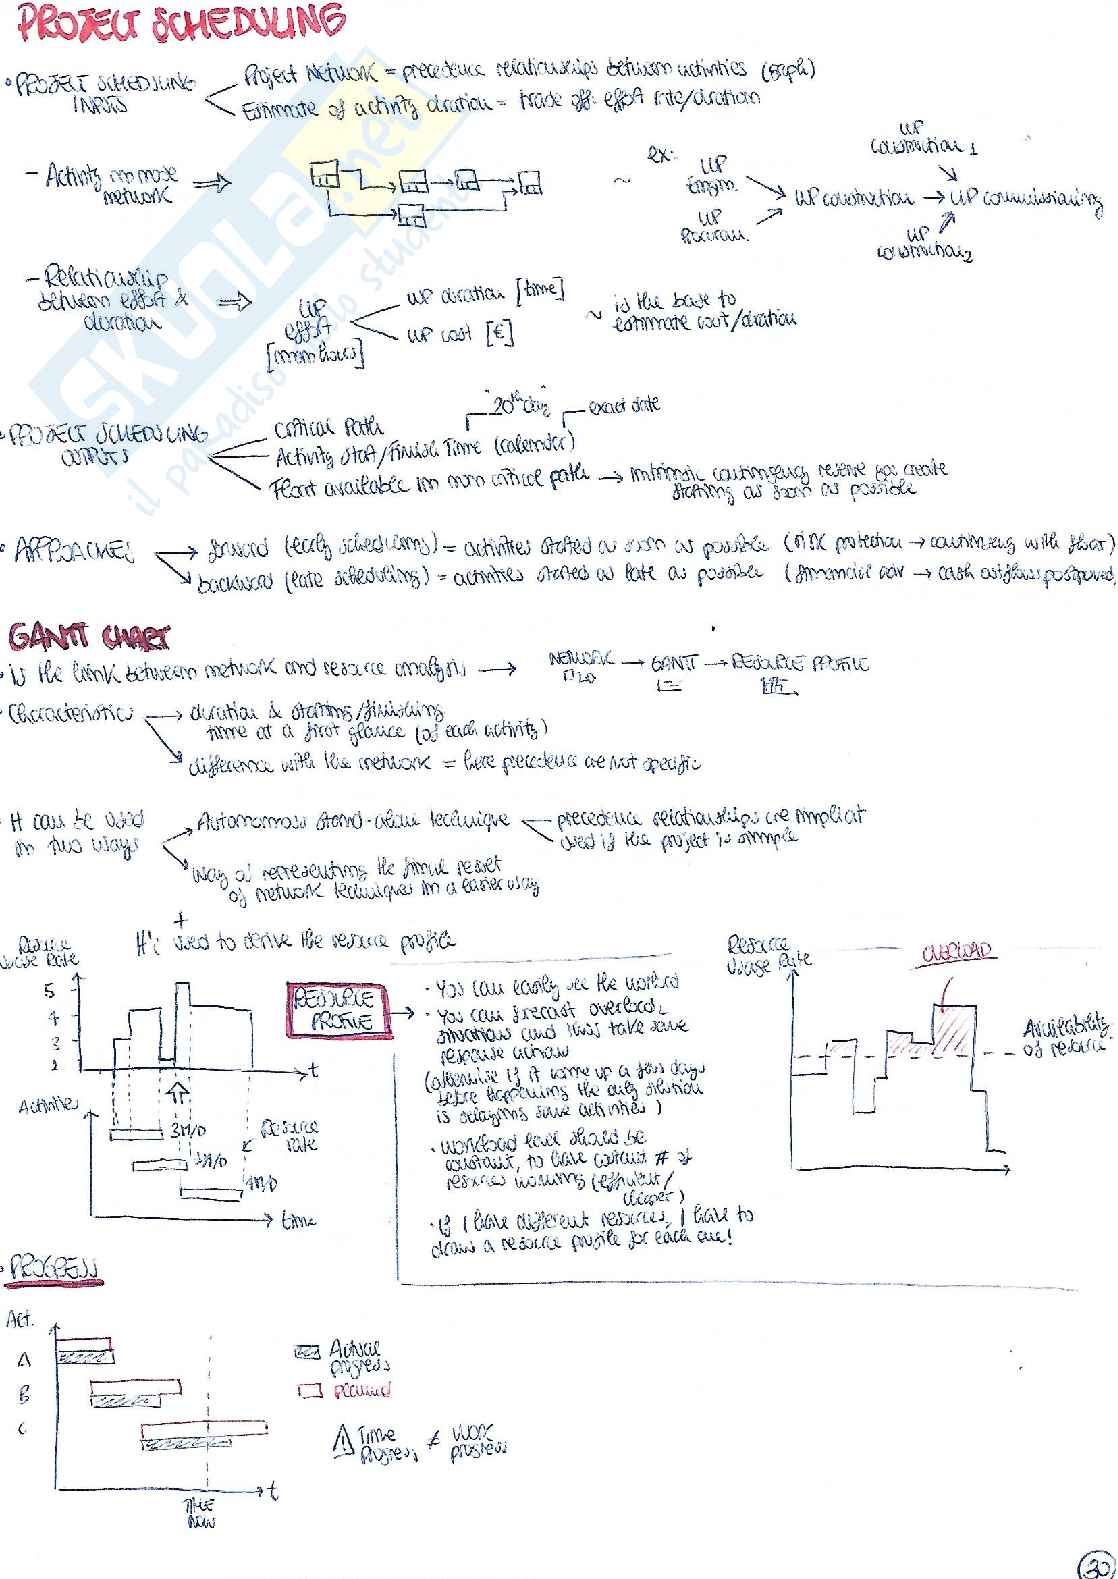 PROJECT SCHEDULING
• PROJECT SCHEDULING INPUTS
Project Network = precedence relationships between activities (graph)
Estimate of activity duration = trade off: effort rate/duration
- Activity on node
network
~ ex:
WP
Engin.
WP
Procurem.
WP construction → WP commissioning
WP
construction 1
WP
construction 2
- Relationship
between effort &
duration
WP
effort
[manhours]
WP duration [time]
WP cost [€]
~ is the base to
estimate cost/duration
• PROJECT SCHEDULING
OUTPUTS
Critical Path
"20th day"
exact date
Activity Start/Finish Time (calendar)
Float available in non critical path → intrinsic contingency reserve you create
starting as soon as possible
• APPROACHES
forward (early scheduling) = activities started as soon as possible (risk protection → contingency with float)
backward (late scheduling) = activities started as late as possible (financial adv → cash outflows postponed)
GANTT CHART
• is the link between network and resource analysis → NETWORK → GANTT → RESOURCE PROFILE
• Characteristics
duration & starting/finishing
time at a first glance (of each activity)
difference with the network = here precedence are not specific
• It can be used
in two ways
Autonomous stand-alone technique
precedence relationships are implicit
used if the project is simple
way of representing the final result
of network techniques in a easier way
+
It's used to derive the resource profile
Resource
Usage Rate
5
4
3
2
t
Activities
3M/D
4M/D
Resource
rate
time
RESOURCE
PROFILE
• You can easily see the workload
• You can forecast overloads
situations and thus take some
response actions
(otherwise if it come up a few days
before happening the only solution
is delaying some activities)
• Workload level should be
constant, to have constant # of
resources working (efficient/
cheaper)
• If I have different resources, I have to
draw a resource profile for each one!
Resource
Usage Rate
OVERLOAD
Availability
of resource
• PROGRESS
Act.
A
B
C
t
TIME
NOW
Actual
progress
planned
Time
Progress ≠ Work
progress
30
SKUOLA.net
il paradiso dello studente